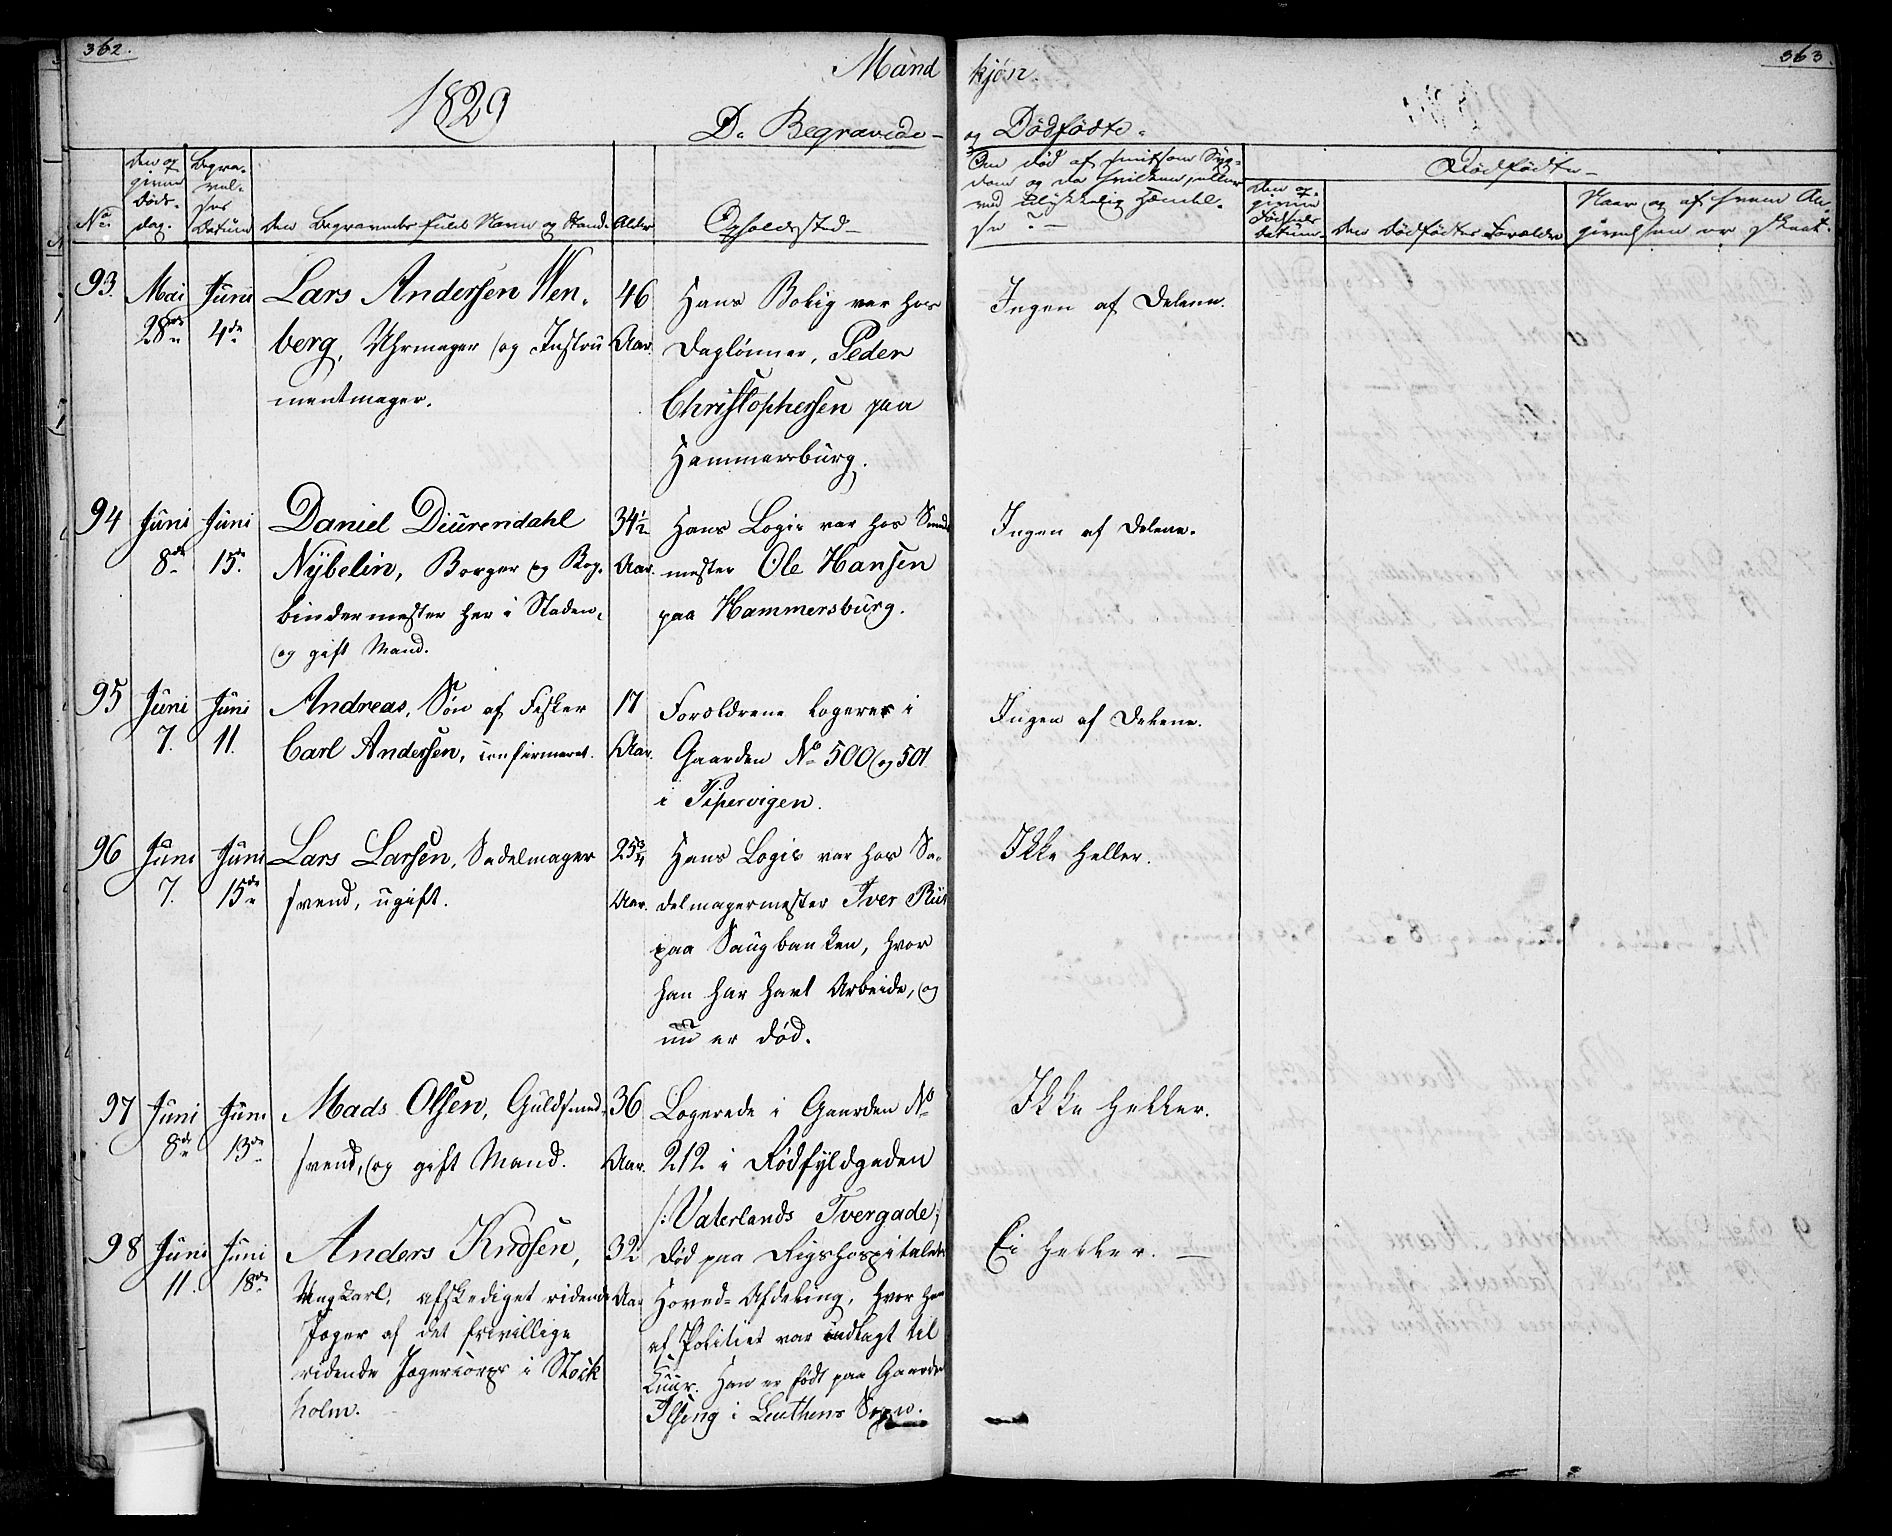 362.
363.
1829
Mand
kjøn.
D. Begravede
og Dødfødte.
No.
Den op
givne
Døds-
dag.
Begra-
vel-
ses
Datum
Den Begravedes fulde Navn og Stand.
Alder
Opholdssted
Om død af smitsom Syg-
dom og da hvilken, eller
ved ulykkelig Hændel-
se?
Dødfødte
Den op-
givne
Fødsels
Datum.
Den Dødfødtes Forældre
Naar og af hvem An-
givelsen er skeet.
93.
Mai
28de
Juni
4de
Lars Andersen Wen-
berg, Uhrmager og Instru
mentmager.
46
Aar.
Hans Bolig var hos
Daglønner, Peder
Christophersen paa
Hammersburg.
Ingen af Delene.
94
Juni
8de
Juni
15de
Daniel Diurendahl
Nybelin, Borger og Bog-
bindermester her i Staden,
og gift Mand.
34½
Aar.
Hans Logis var hos Smede
mester Ole Hansen
paa Hammersburg.
Ingen af Delene.
95
Juni
7.
Juni
11.
Andreas, Søn af Fisker
Carl Andersen, confirmeret.
17
Aar.
Forældrene logerer i
Gaarden No 500 og 501
i Pipervigen.
Ingen af Delene.
96
Juni
7.
Juni
15de
Lars Larsen, Sadelmager
svend, ugift.
25¾
Aar.
Hans Logis var hos Sa-
delmagermester Iver Riis
paa Saugbanken, hvor
han har havt Arbeide, og
nu er død.
Ikke heller.
97
Juni
8de
Juni
13de
Mads Olsen, Guldsmed-
svend, og gift Mand.
36
Aar.
Logerede i Gaarden No
212 i Rødfyldgaden
/: Vaterlands Tvergade,
Ikke heller.
98
Juni
11.
Juni
18de
Anders Knudsen,
Ungkarl, afskediget ridende
Jæger af det frivillige
ridende Jægercorps i Stock
holm.
32
Aar
død paa Rigshospitalets
Hoved-Afdeling, hvor han
af Politiet var indlagt til
Cuur. Han er født paa Gaarden
Ilseng i Leuthens Sogn.
Ei heller.